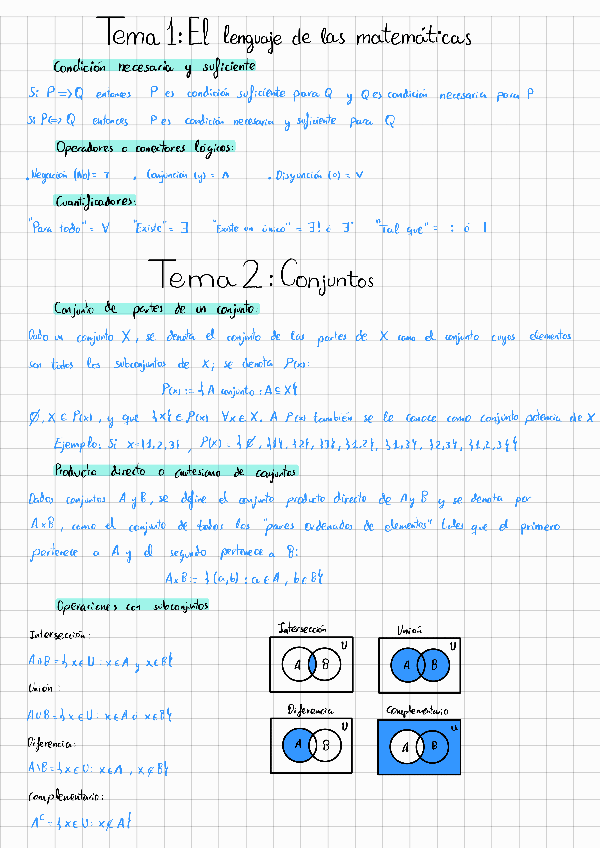 Tema 1: El lenguaje de las matemáticas
Condición necesaria y suficiente
Si P => Q entonces P es condición suficiente para Q y Q es condición necesaria para P
Si P <=> Q entonces P es condición necesaria y suficiente para Q
Operadores o conectores lógicos:
. Negación (No) = ¬ . Conjunción (y) = ∧ . Disyunción (o) = ∨
Cuantificadores:
"Para todo" = ∀ "Existe" = ∃ "Existe un único" = ∃! ó ∃· "Tal que" = : ó |
Tema 2: Conjuntos
Conjunto de partes de un conjunto:
Dado un conjunto X, se denota el conjunto de las partes de X como el conjunto cuyos elementos
son todos los subconjuntos de X; se denota P(x):
P(x) := {A conjunto : A ⊆ X}
∅, X ∈ P(x), y que {x} ∈ P(x) ∀x ∈ X. A P(x) también se le conoce como conjunto potencia de X
Ejemplo: Si X={1,2,3}, P(x) = {∅, {1}, {2}, {3}, {1,2}, {1,3}, {2,3}, {1,2,3}}
Producto directo o cartesiano de conjuntos
Dados conjuntos A y B, se define el conjunto producto directo de A y B y se denota por
A×B, como el conjunto de todos los "pares ordenados de elementos" tales que el primero
pertenece a A y el segundo pertenece a B:
A×B := {(a,b) : a ∈ A, b ∈ B}
Operaciones con subconjuntos
Intersección:
A∩B = {x ∈ U : x ∈ A y x ∈ B}
Unión:
A∪B = {x ∈ U : x ∈ A ó x ∈ B}
Diferencia:
A\B = {x ∈ U : x ∈ A, x ∉ B}
Complementario:
Aᶜ = {x ∈ U : x ∉ A}
Intersección
U
A B
Unión
U
A B
Diferencia
U
A B
Complementario
U
A B